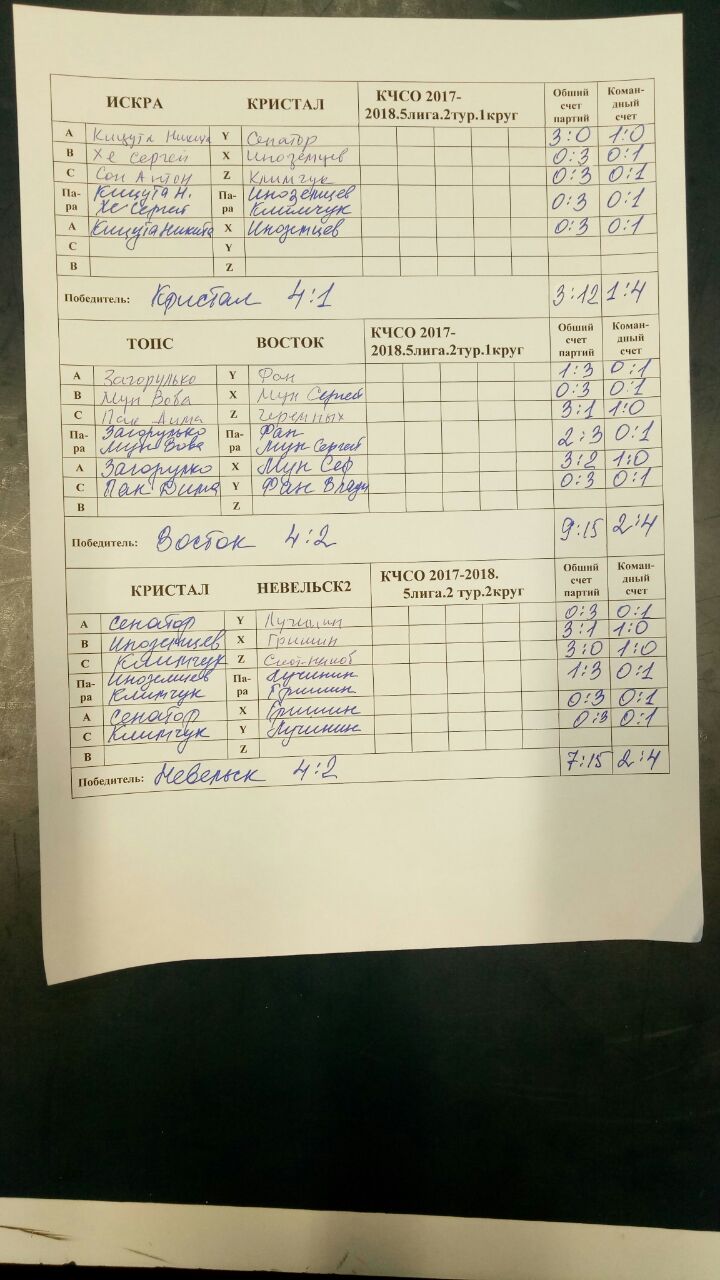 ИСКРА КРИСТАЛ КЧСО 2017-2018.5лига.2тур.1круг Обший счет партий Коман-дный счет
А Кицута Никита Y Сенатор 3:0 1:0
В Хе Сергей X Иноземцев 0:3 0:1
С Сон Антон Z Климчук 0:3 0:1
Па-ра Кицута Н. Хе Сергей Па-ра Иноземцев Климчук 0:3 0:1
А Кицута Никита X Иноземцев 0:3 0:1
С Y
В Z
Победитель: Кристал 4:1 3:12 1:4
ТОПС ВОСТОК КЧСО 2017-2018.5лига.2тур.1круг Обший счет партий Коман-дный счет
А Загорулько Y Фан 1:3 0:1
В Мун Вова X Мун Сергей 0:3 0:1
С Пак Дима Z Черемных 3:1 1:0
Па-ра Загорулько Мун Вова Па-ра Фан Мун Сергей 2:3 0:1
А Загорулко X Мун Сер 3:2 1:0
С Пак Дима Y Фан Влади 0:3 0:1
В Z
Победитель: Восток 4:2 9:15 2:4
КРИСТАЛ НЕВЕЛЬСК2 КЧСО 2017-2018. 5лига.2 тур.2круг Обший счет партий Коман-дный счет
А Сенатор Y Лучинин 0:3 0:1
В Иноземцев X Гришин 3:1 1:0
С Климчук Z 3:0 1:0
Па-ра Иноземцев Климчук Па-ра Лучинин Гришин 1:3 0:1
А Сенатор X Гришин 0:3 0:1
С Климчук Y Лучинин 0:3 0:1
В Z
Победитель: Невельск 4:2 7:15 2:4